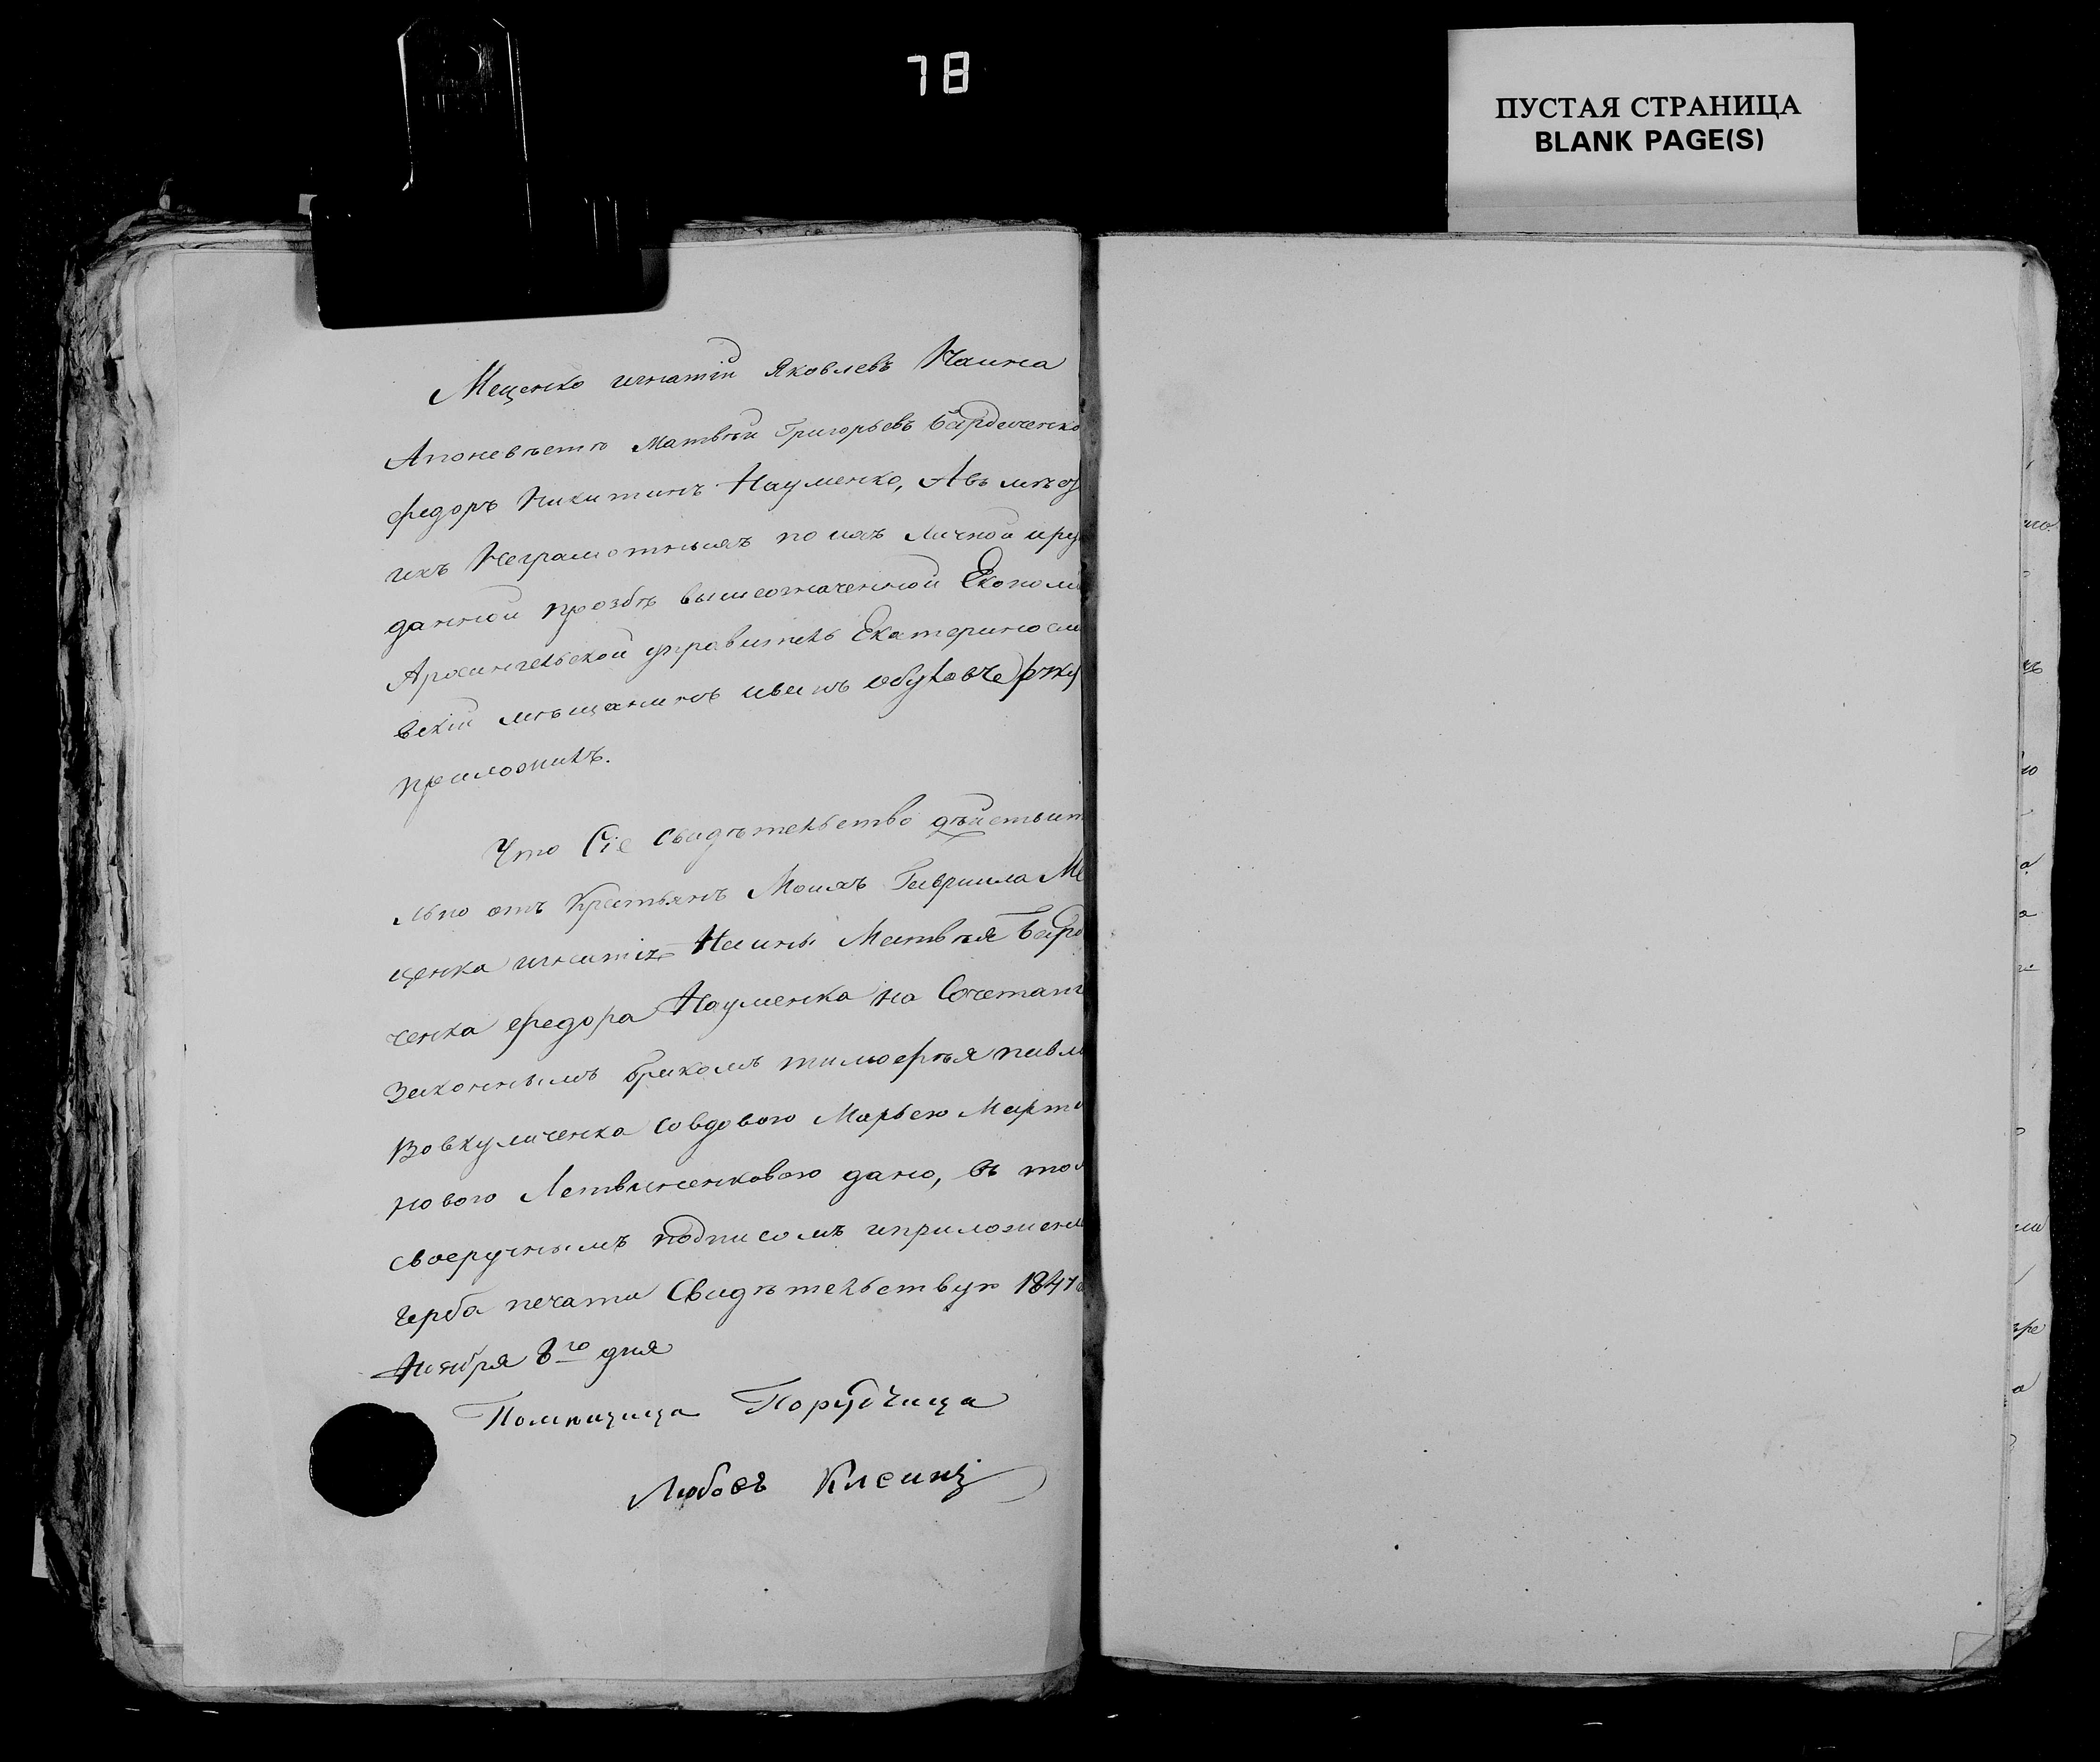 78
ПУСТАЯ СТРАНИЦА
BLANK PAGE(S)
Меценко игнатій Яковлевъ Наина
Матвѣй Григорьевъ Бардаченко
федоръ Никитинъ Науменко, Авъ мѣсто
ихъ Неграмотныхъ по ихъ личной иру
данной прозбѣ вышеозначенной Економі
Архангельской управитель Екатериносла
вскій мѣщанинъ иванъ руку
приложилъ.
Что Сіе Свидѣтельство дѣйствит
льно отъ Крестьянъ Моихъ Гавриила Ме
ценка игнатія Наины Матвѣя Барда
ченка федора Науменка на Сочетані
Законнымъ бракомъ тимофѣя павло
Вовкуличенка совдовою Марьею Марти
новою Летвиненковою дано, въ том
своеручнымъ подписомъ иприложени
герба печати Свидѣтельствую 1847
Ноября 8го дня
Помѣщица Поручица
Любовъ